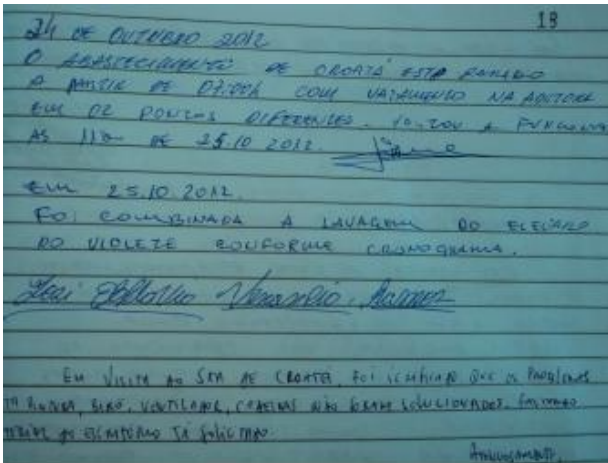 18
24 DE OUTUBRO 2012
O ABASTECIMENTO DE CROATÁ ESTA PARADO
A PARTIR DE 07:00h COM VAZAMENTO NA ADUTORA
EM 02 PONTOS DIFERENTES. VOLTOU A FUNCIONA
AS 11h DE 25.10 2012.
EM 25.10.2012.
FOI COMBINADA A LAVAGEM DO
DO VIOLETE CONFORME CRONOGRAMA.
José
EM VISITA AO SAA DE CROATÁ, FOI VERIFICADO QUE OS PROBLEMAS
PINTURA, BIRÔ, VENTILADOR, CADEIRAS NÃO FORAM SOLUCIONADOS.
DO ESCRITÓRIO TÁ SOLICITADO.
ATENCIOSAMENTE,